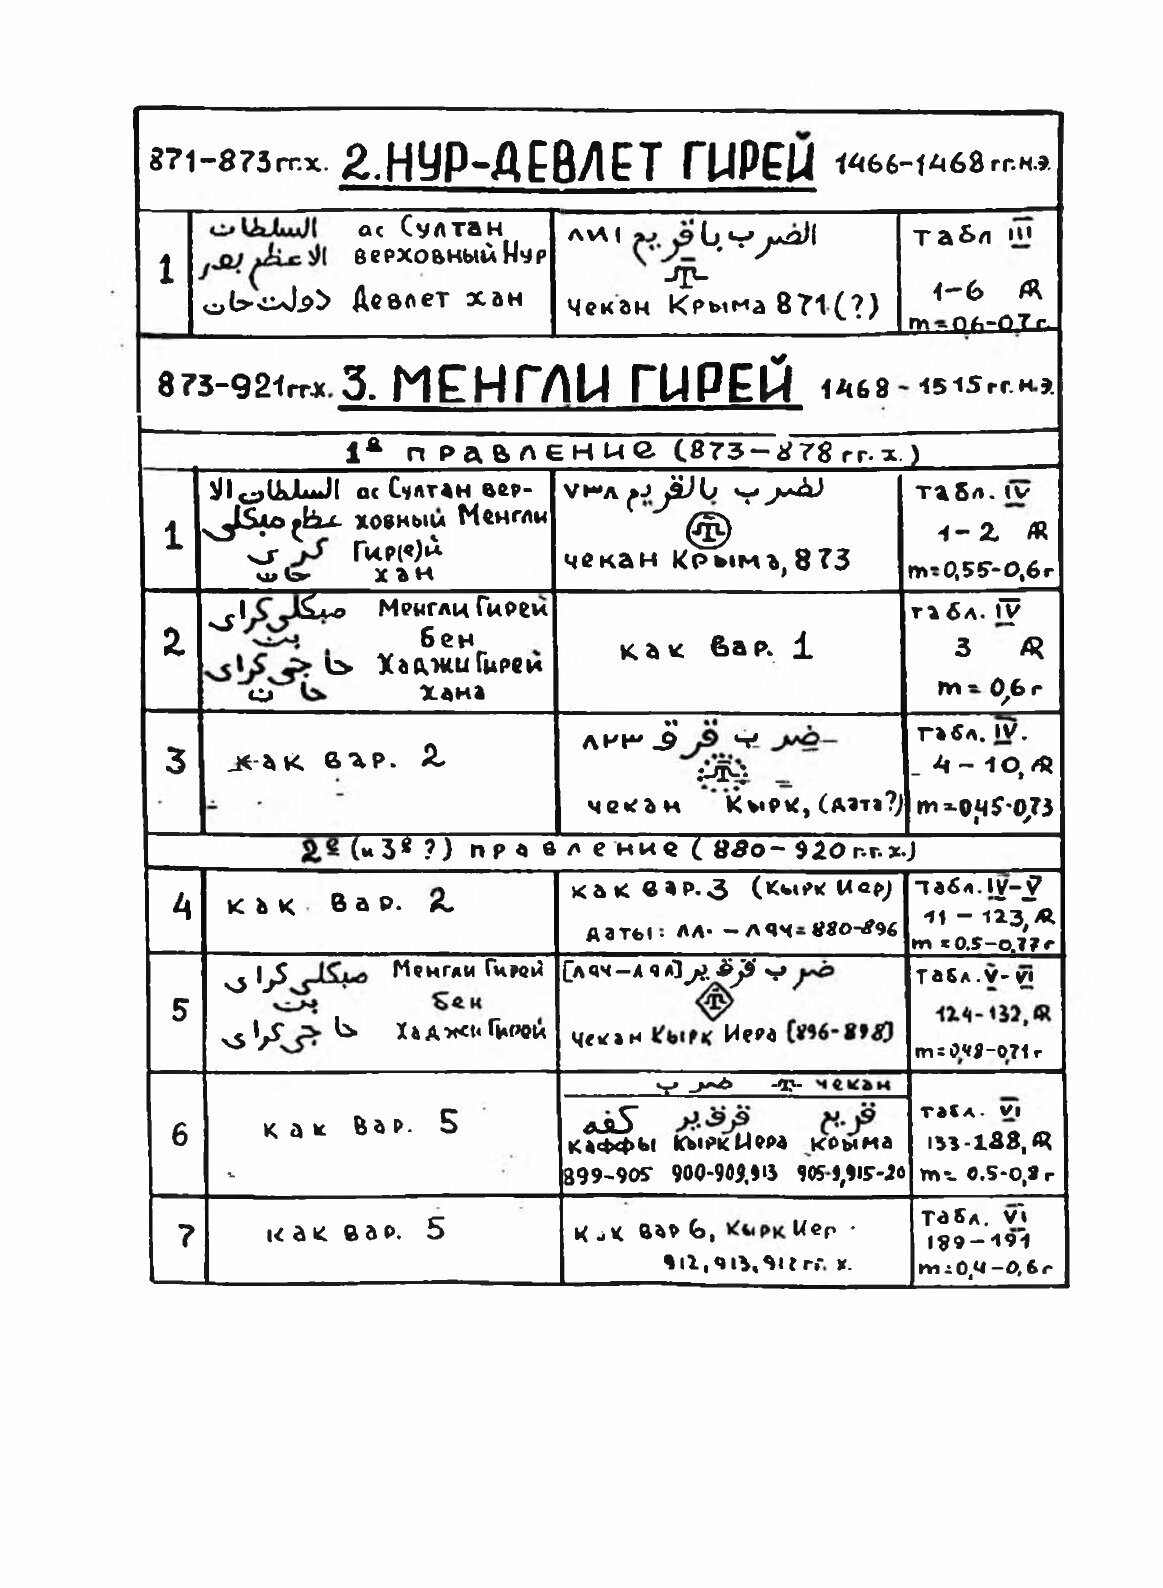 871-873гг.х. 2. НУР-ДЕВЛЕТ ГИРЕЙ 1466-1468 гг.н.э.
1
السلطان ас Султан
الاعظم верховный Нур
دولت خان Девлет хан
الضرب باقريم ٨٧١
чекан Крыма 871 (?)
табл III
1-6 AR
m=0,6-0,7г.
873-921гг.х. 3. МЕНГЛИ ГИРЕЙ 1468-1515гг.н.э.
1е правление (873-878 гг. х.)
1
السلطان الا ас Султан вер-
عظم منكلى ховный Менгли
كرى Гир(е)й
خان хан
لضرب بالقريم ٧٣٨
чекан Крыма, 873
табл. IV
1-2 AR
m=0,55-0,6г
2
منكلى كراى Менгли Гирей
بن бен
حاجى كراى Хаджи Гирей
خان хана
как вар. 1
табл. IV
3 AR
m=0,6г
3
как вар. 2
ضرب قرق ٨٢٣
чекан Кырк, (дата?)
табл. IV.
4-10, AR
m=0,45-0,73
2е (и 3е ?) правление (880-920 г.г. х.)
4
как вар. 2
как вар. 3 (Кырк Иер)
даты: ٨٨٠ - ٨٩٤ = 880-896
табл. IV-V
11-123, AR
m=0.5-0,77г
5
منكلى كراى Менгли Гирей
بن бен
حاجى كراى Хаджи Гирей
ضرب قرقير [٨٩٤-٨٩٨]
чекан Кырк Иера [896-898]
табл. V-VI
124-132, AR
m=0,48-0,71г
6
как вар. 5
ضرب чекан
كفه قرقير قريم
Каффы Кырк Иера Крыма
899-905 900-909,913 905-9,915-20
табл. VI
133-188, AR
m=0.5-0,8г
7
как вар. 5
как вар 6, Кырк Иер
912, 913, 912 гг. х.
табл. VI
189-191
m=0,4-0,6г